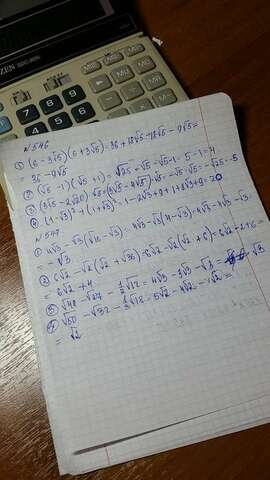 ZEN
N546
① (6 - 3√5)(6 + 3√5) = 36 + 18√5 - 18√5 - 9√5 =
= 36 - 9√5
② (√5 - 1)(√5 + 1) = √25 + √5 - √5 - 1 = 5 - 1 = 4
③ (3√5 - 2√20) · √5 = (3√5 - 4√5) · √5 = -√5 · √5 = -√25 = -5
④ (1 - √3)² + (1 + √3)² = 1 - 2√3 + 9 + 1 + 2√3 + 9 = 20
N547
① 4√3 - √3(√16 - √3) = 4√3 - √3(4 - √3) = 4√3 - 4√3 - √3 =
= -√3
② 6√2 - √2(√2 + √36) = 6√2 - √2(√2 + 6) = 6√2 - 2 + 6
= 6√2 + 4
③ √48 - √27 - ½√12 = 4√3 - 3√3 - √3 =
④ √50 - √32 - ½√12 = 5√2 - 4√2 - √2 =
= √2